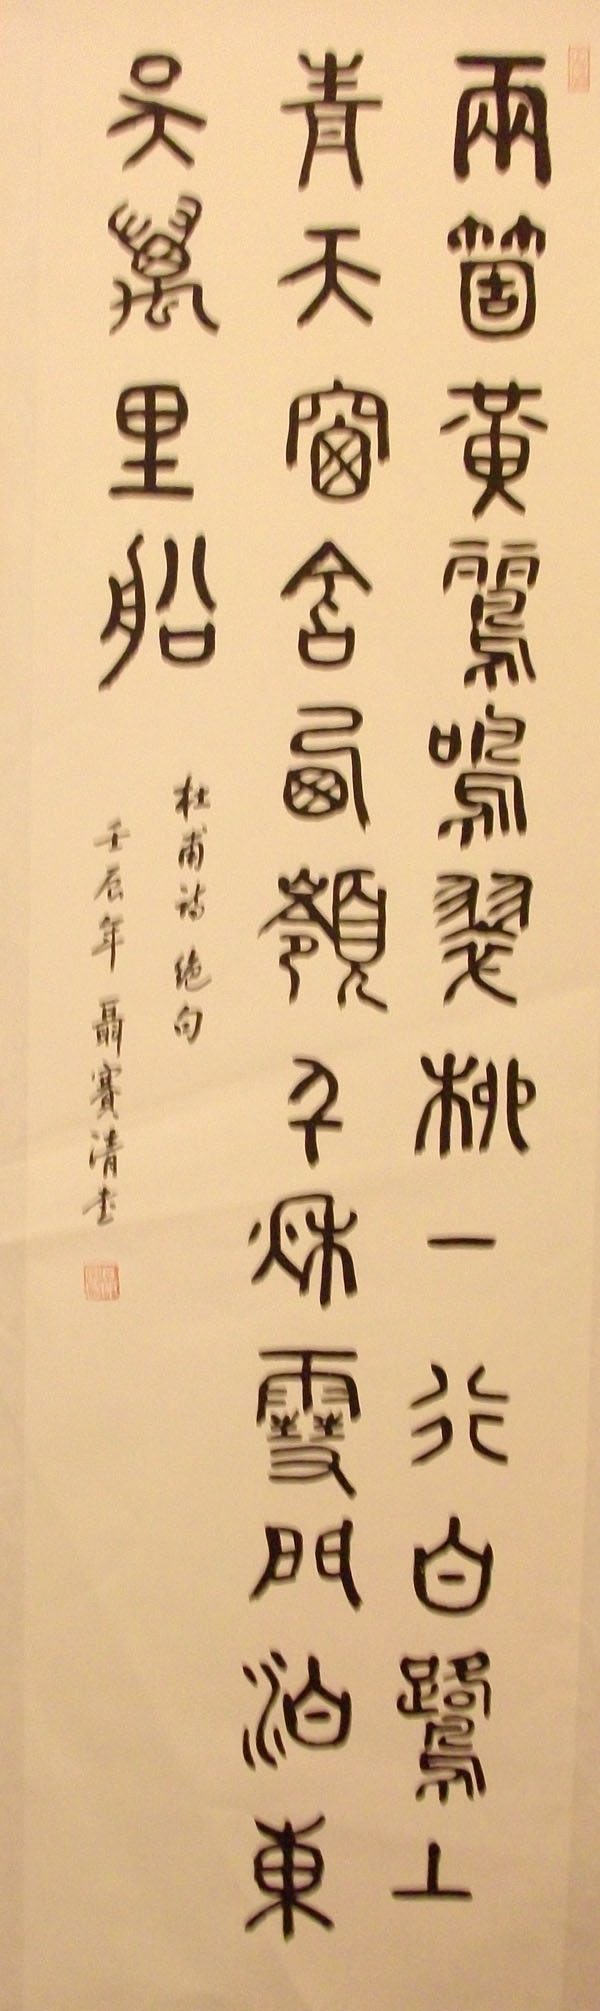 兩箇黃鸝鳴翠柳一行白鷺上
青天窗含西嶺千秋雪門泊東
吳萬里船
杜甫詩 絕句
壬辰年 聶賽清書